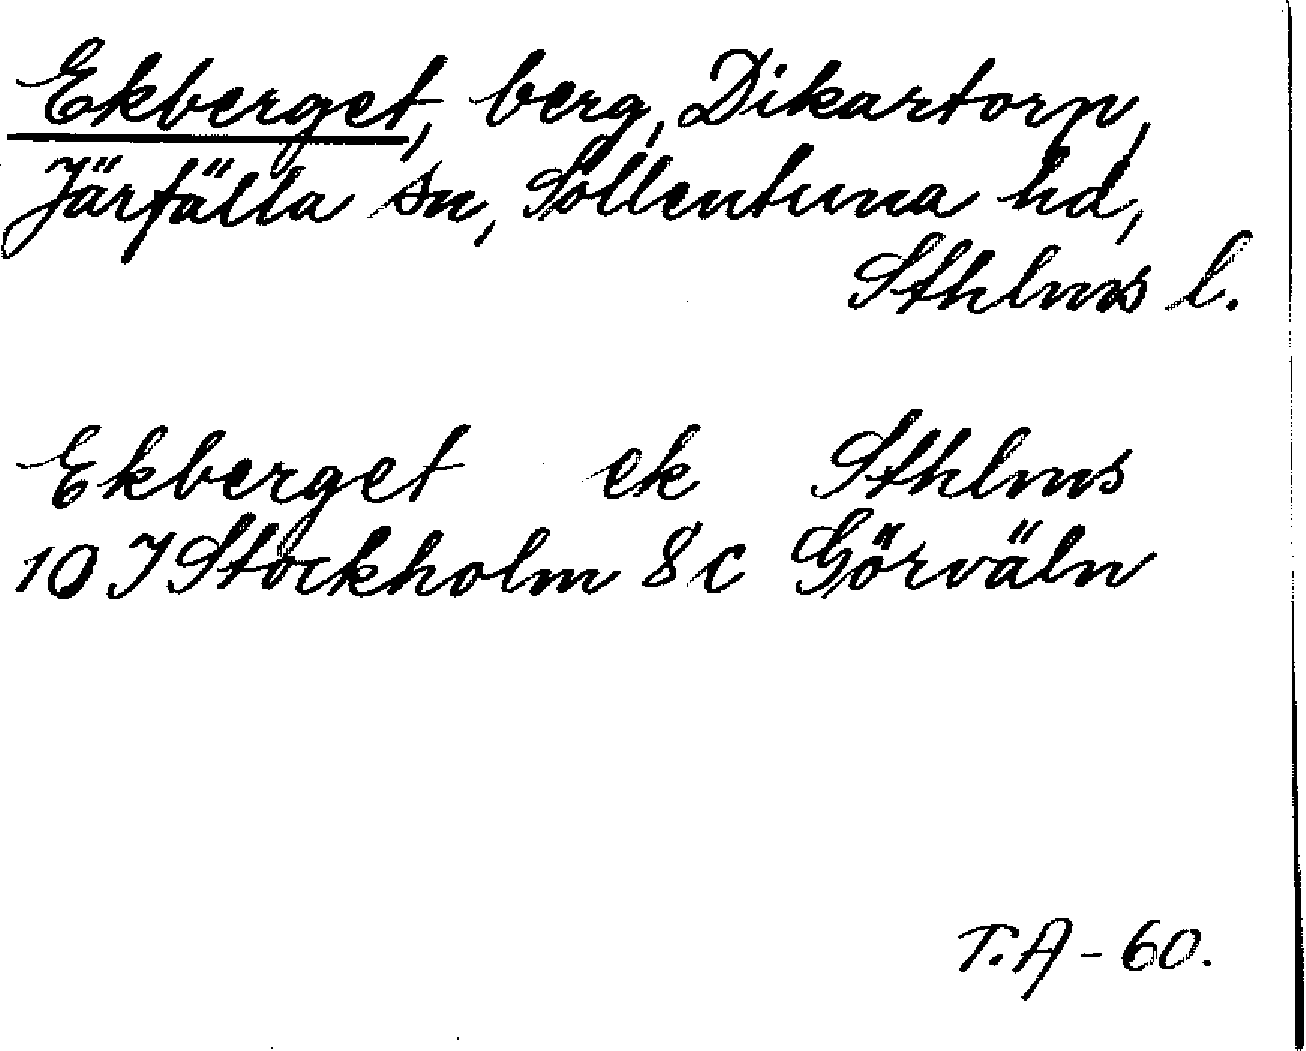 Ekberget, berg, Dikartorp,
Järfälla sn, Sollentuna hd,
Sthlms l.
Ekberget ek Sthlms
10 I Stockholm 8 c Görväln
T.A - 60.